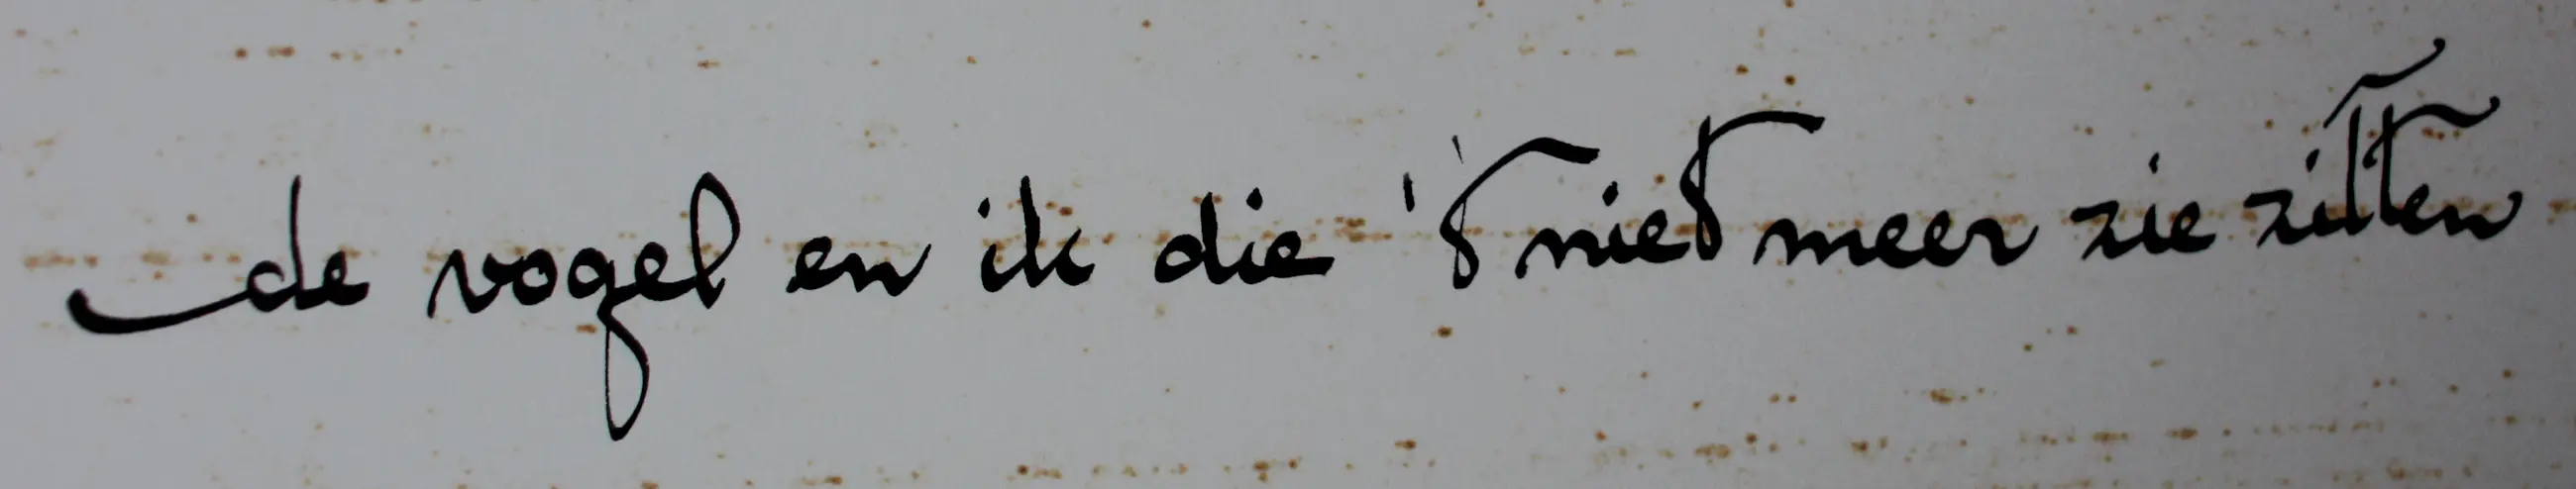 de vogel en ik die 't niet meer zie zitten